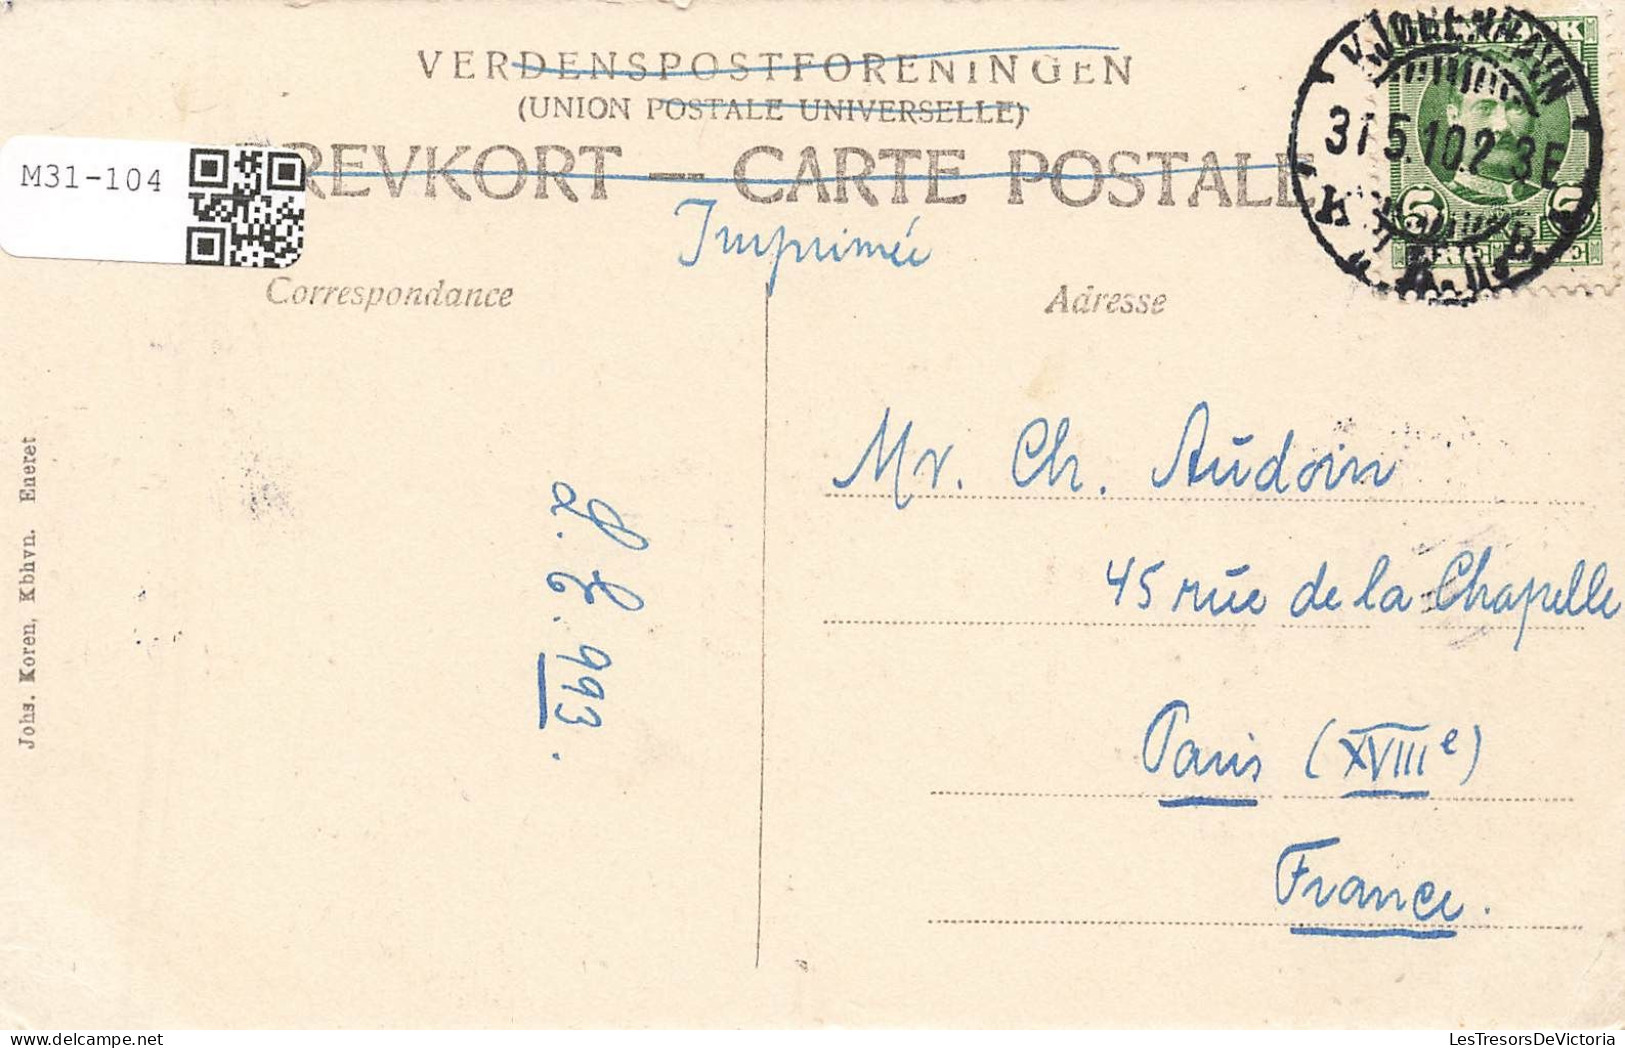 VERDENSPOSTFORENINGEN
(UNION POSTALE UNIVERSELLE)
BREVKORT — CARTE POSTALE
M31-104
KJØBENHAVN
31.5.10.2-3E
Imprimée
Correspondance
Adresse
Mr. Ch. Audoin
45 rue de la Chapelle
Paris (XVIIIe)
France.
L. C. 993.
Johs. Koren, Kbhvn. Eneret
LesTresorsDeVictoria